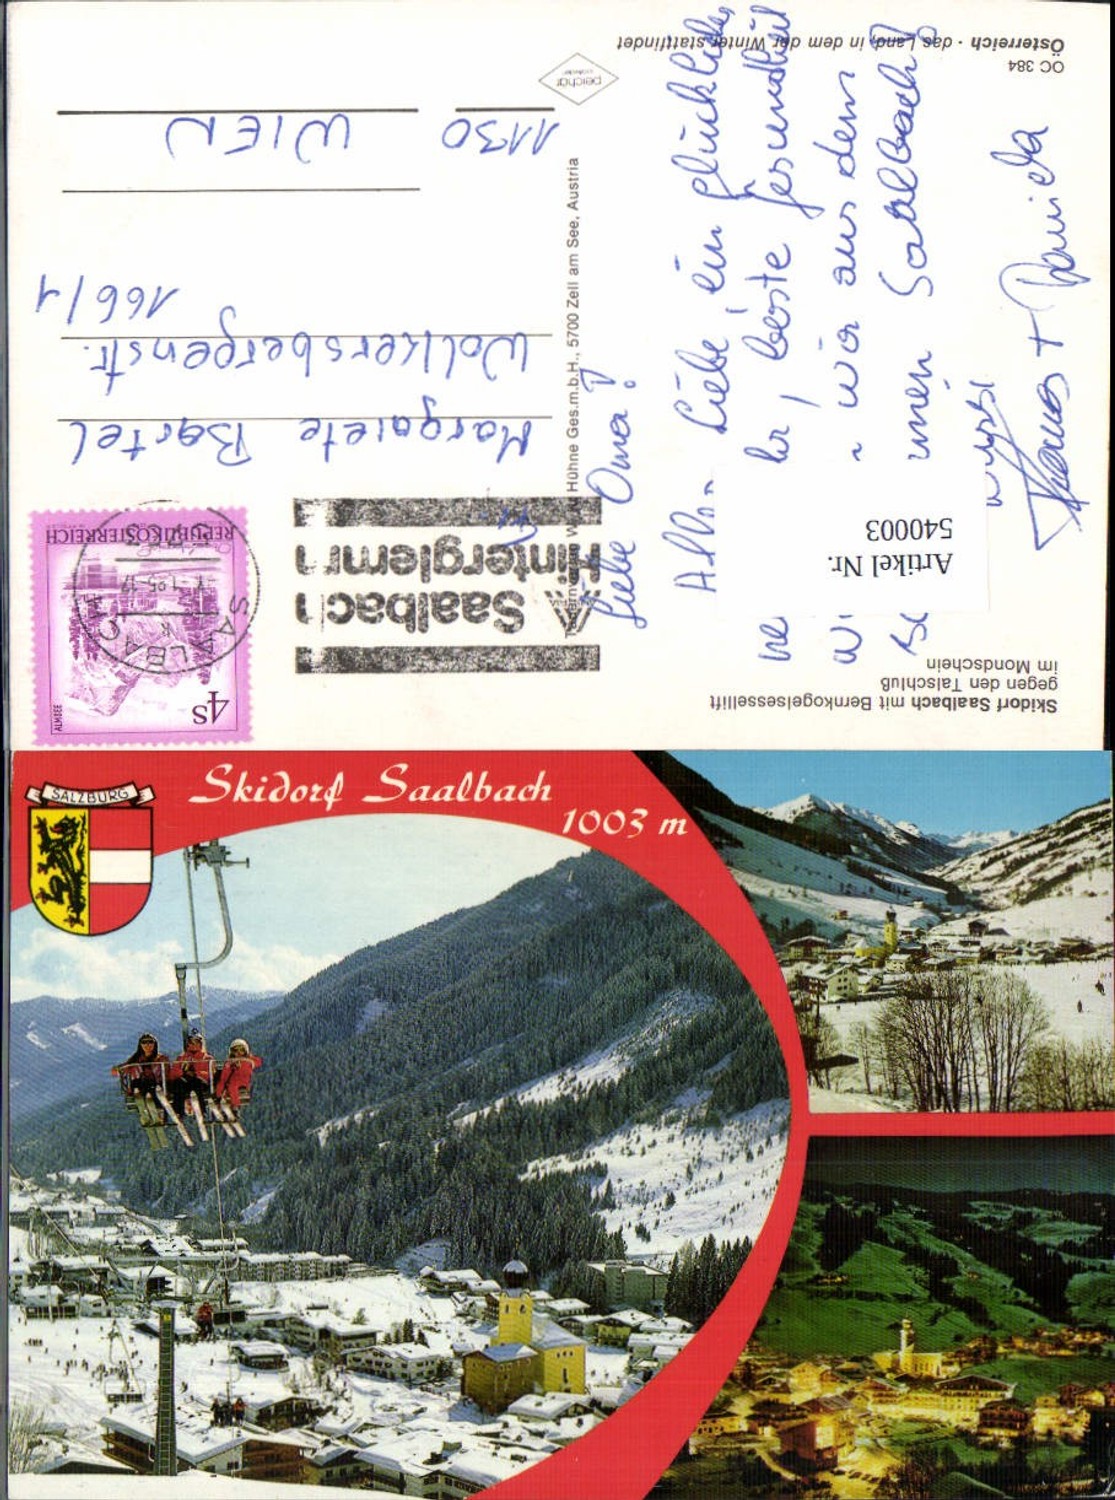 Skidorf Saalbach mit Bernkogelsessellift
gegen den Talschluß
im Mondschein
Artikel Nr.
540003
Liebe Oma!
Liebe ein glückliches
beste Gesundheit
wir aus dem
Saalbach!
+ Daniela
OC 384
Österreich · das Land, in dem der Winter stattfindet
Hühne Ges.m.b.H., 5700 Zell am See, Austria
Saalbach
Hinterglemm
4S
ALMSEE
REPUBLIK ÖSTERREICH
Margarete Bartel
Wolkersbergenstr.
166/1
1130 WIEN
SALZBURG
Skidorf Saalbach
1003 m